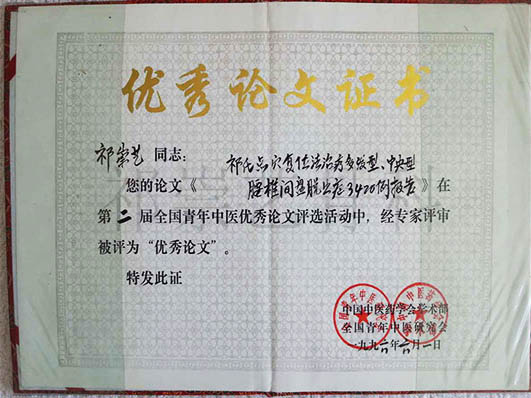 优秀论文证书
祁崇艺 同志： 祁氏点穴复位法治疗多发型、中央型
您的论文《腰椎间盘脱出症3420例报告》在
第二届全国青年中医优秀论文评选活动中，经专家评审
被评为“优秀论文”。
特发此证
中国中医药学会学术部
全国青年中医研究会